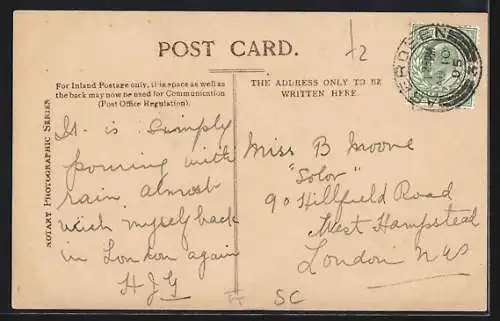 POST CARD.
For Inland Postage only, this space as well as
the back may now be used for Communication
(Post Office Regulation).
THE ADDRESS ONLY TO BE
WRITTEN HERE.
ROTARY PHOTOGRAPHIC SERIES
It is simply
pouring with
rain, almost
wish myself back
in London again
HJG
Miss B Moore
"Solor"
90 Hillfield Road
West Hampstead
London NW
ABERDEEN
10
05
SC